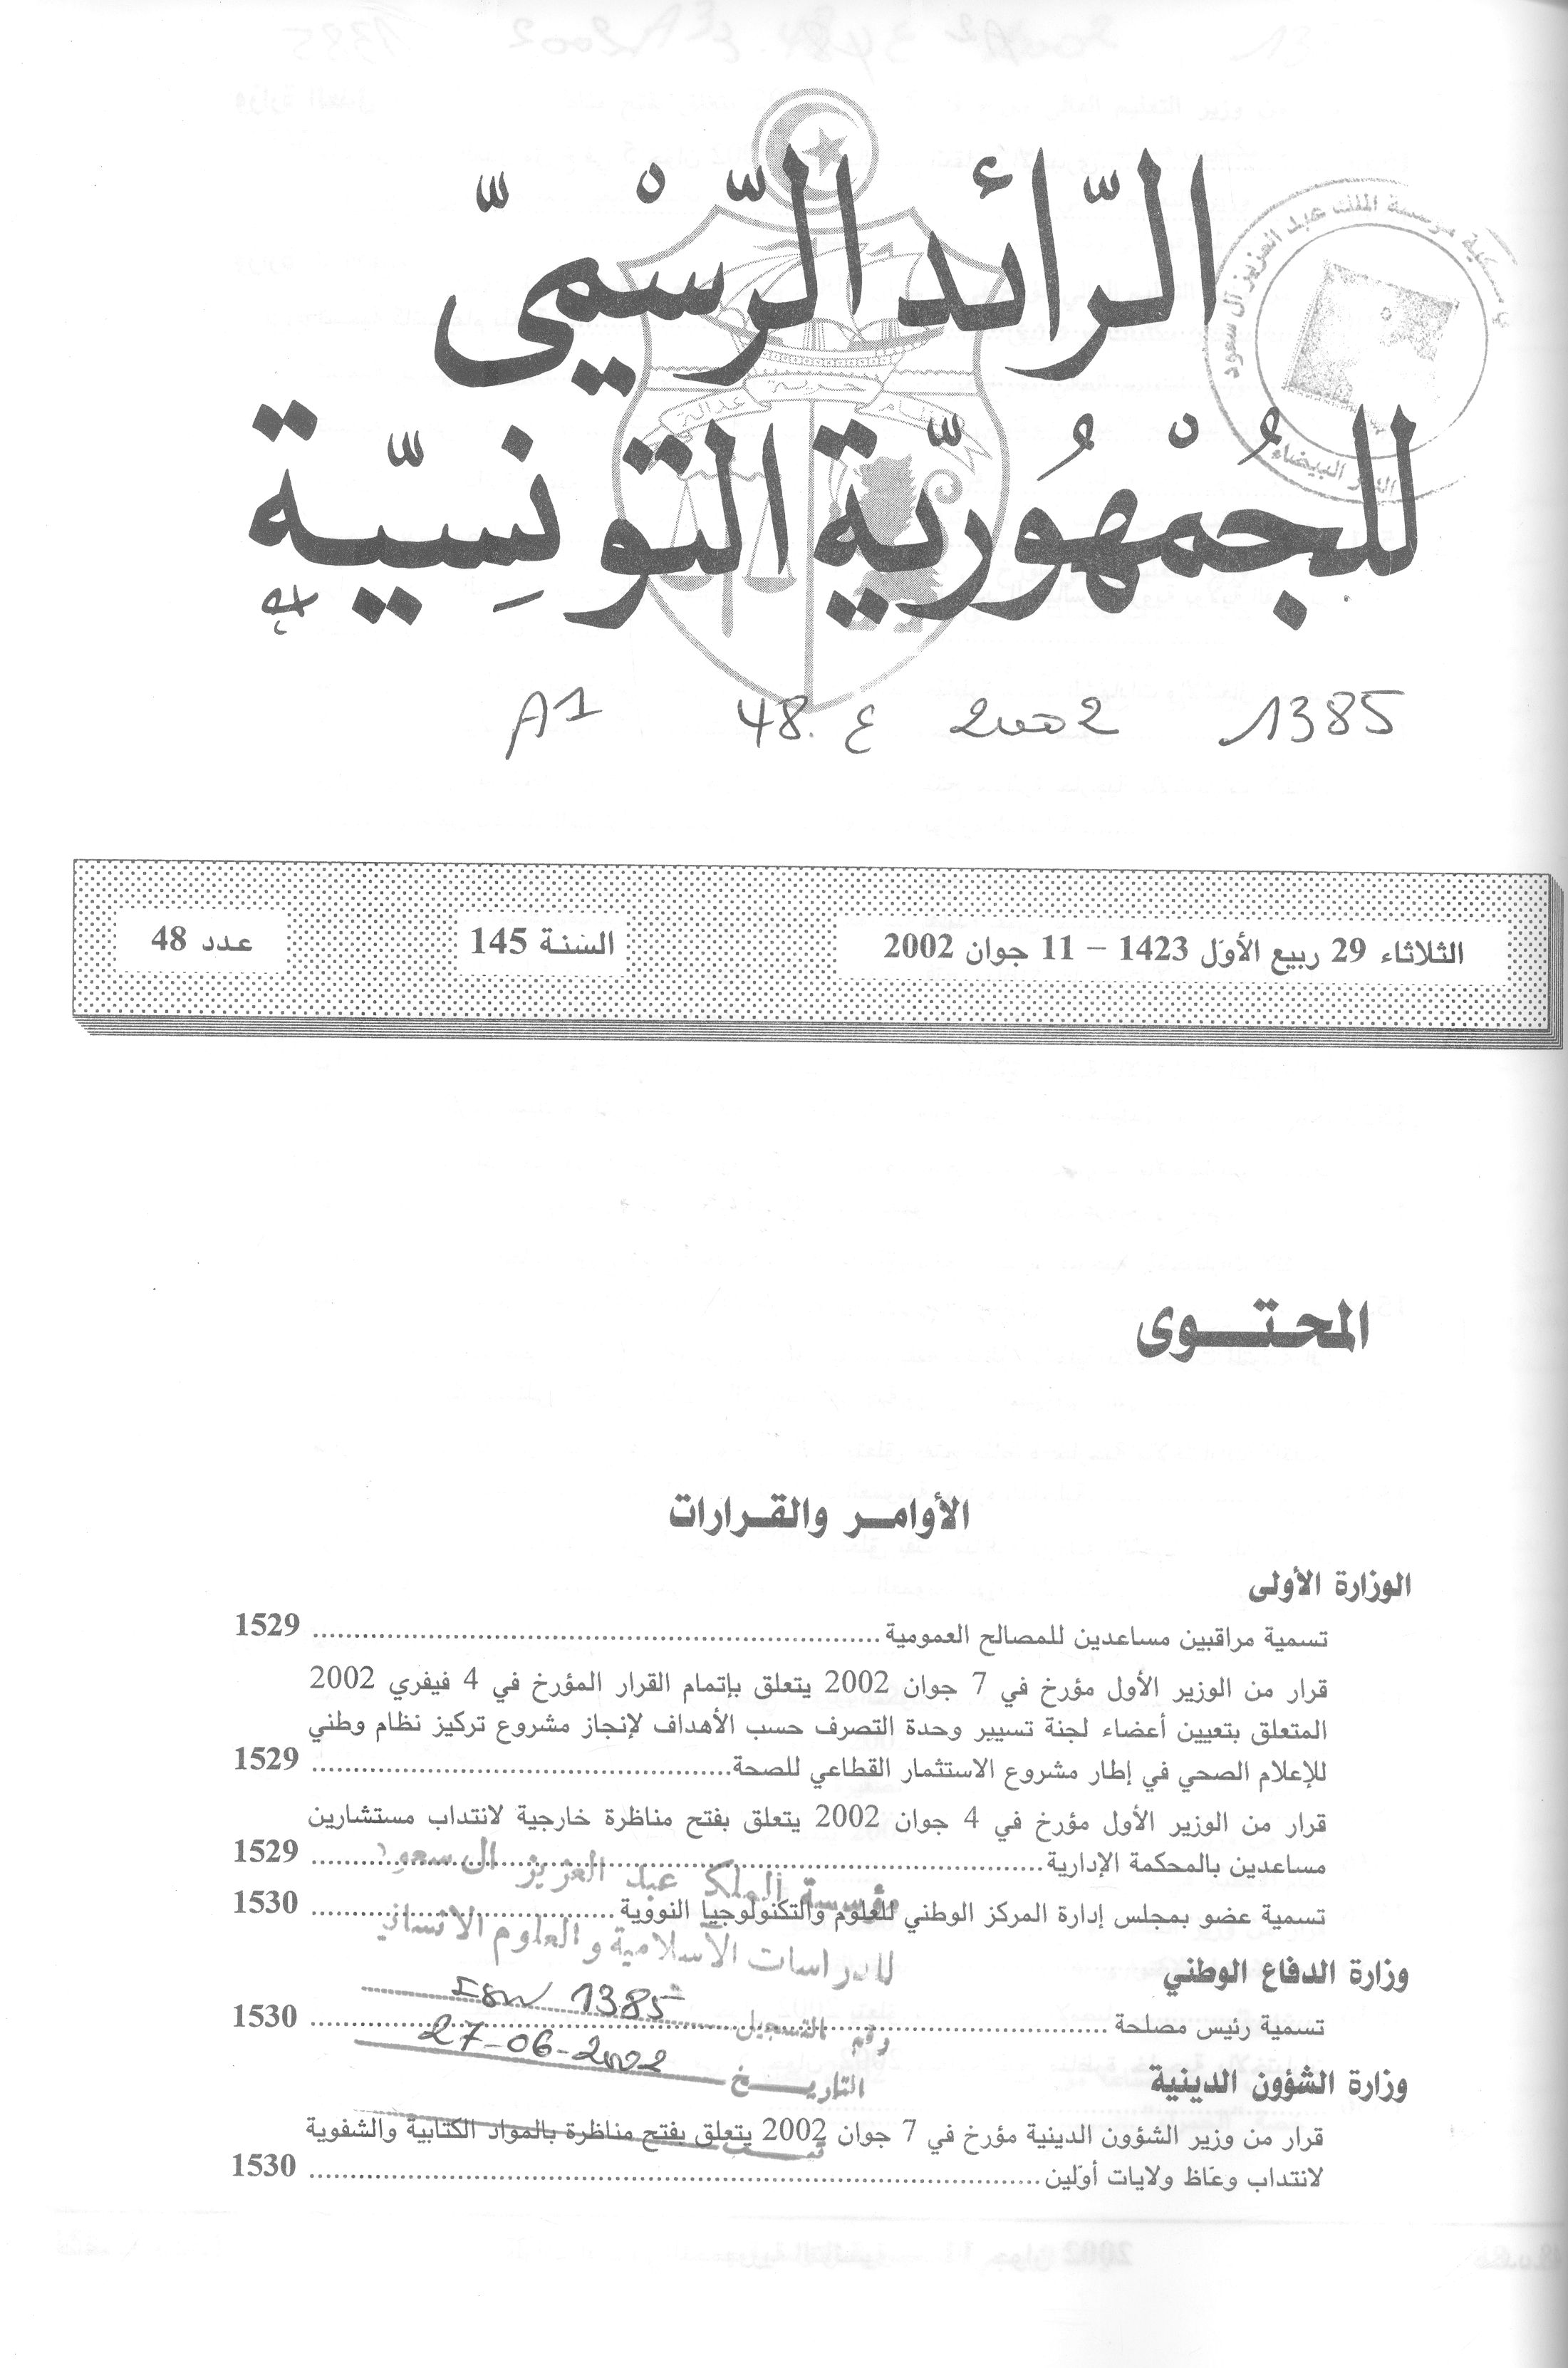 الرّائد الرّسْميّ
للجُمْهُوريّة التونِسيّة
حرية
نظام
عدالة
مؤسسة الملك عبد العزيز آل سعود
الدار البيضاء
1385 2002 ع .48 A1
الثلاثاء 29 ربيع الأوّل 1423 – 11 جوان 2002
السّنة 145
عدد 48
المحتوى
الأوامر والقرارات
الوزارة الأولى
تسمية مراقبين مساعدين للمصالح العمومية 1529
قرار من الوزير الأول مؤرخ في 7 جوان 2002 يتعلق بإتمام القرار المؤرخ في 4 فيفري 2002
المتعلق بتعيين أعضاء لجنة تسيير وحدة التصرف حسب الأهداف لإنجاز مشروع تركيز نظام وطني
للإعلام الصحي في إطار مشروع الاستثمار القطاعي للصحة 1529
قرار من الوزير الأول مؤرخ في 4 جوان 2002 يتعلق بفتح مناظرة خارجية لانتداب مستشارين
مساعدين بالمحكمة الإدارية 1529
تسمية عضو بمجلس إدارة المركز الوطني للعلوم والتكنولوجيا النووية 1530
وزارة الدفاع الوطني
تسمية رئيس مصلحة 1530
وزارة الشؤون الدينية
قرار من وزير الشؤون الدينية مؤرخ في 7 جوان 2002 يتعلق بفتح مناظرة بالمواد الكتابية والشفوية
لانتداب وعّاظ ولايات أوّلين 1530
مؤسسة الملك عبد العزيز آل سعود
للدراسات الاسلامية والعلوم الانسانية
رقم التسجيل 1385
التاريخ 27-06-2002